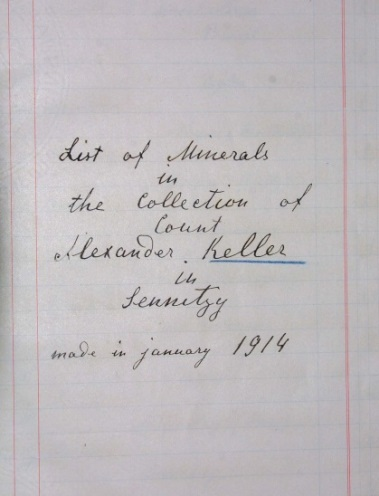 List of Minerals
in
the Collection of
Count
Alexander. Keller
in
Sennitzy
made in january 1914